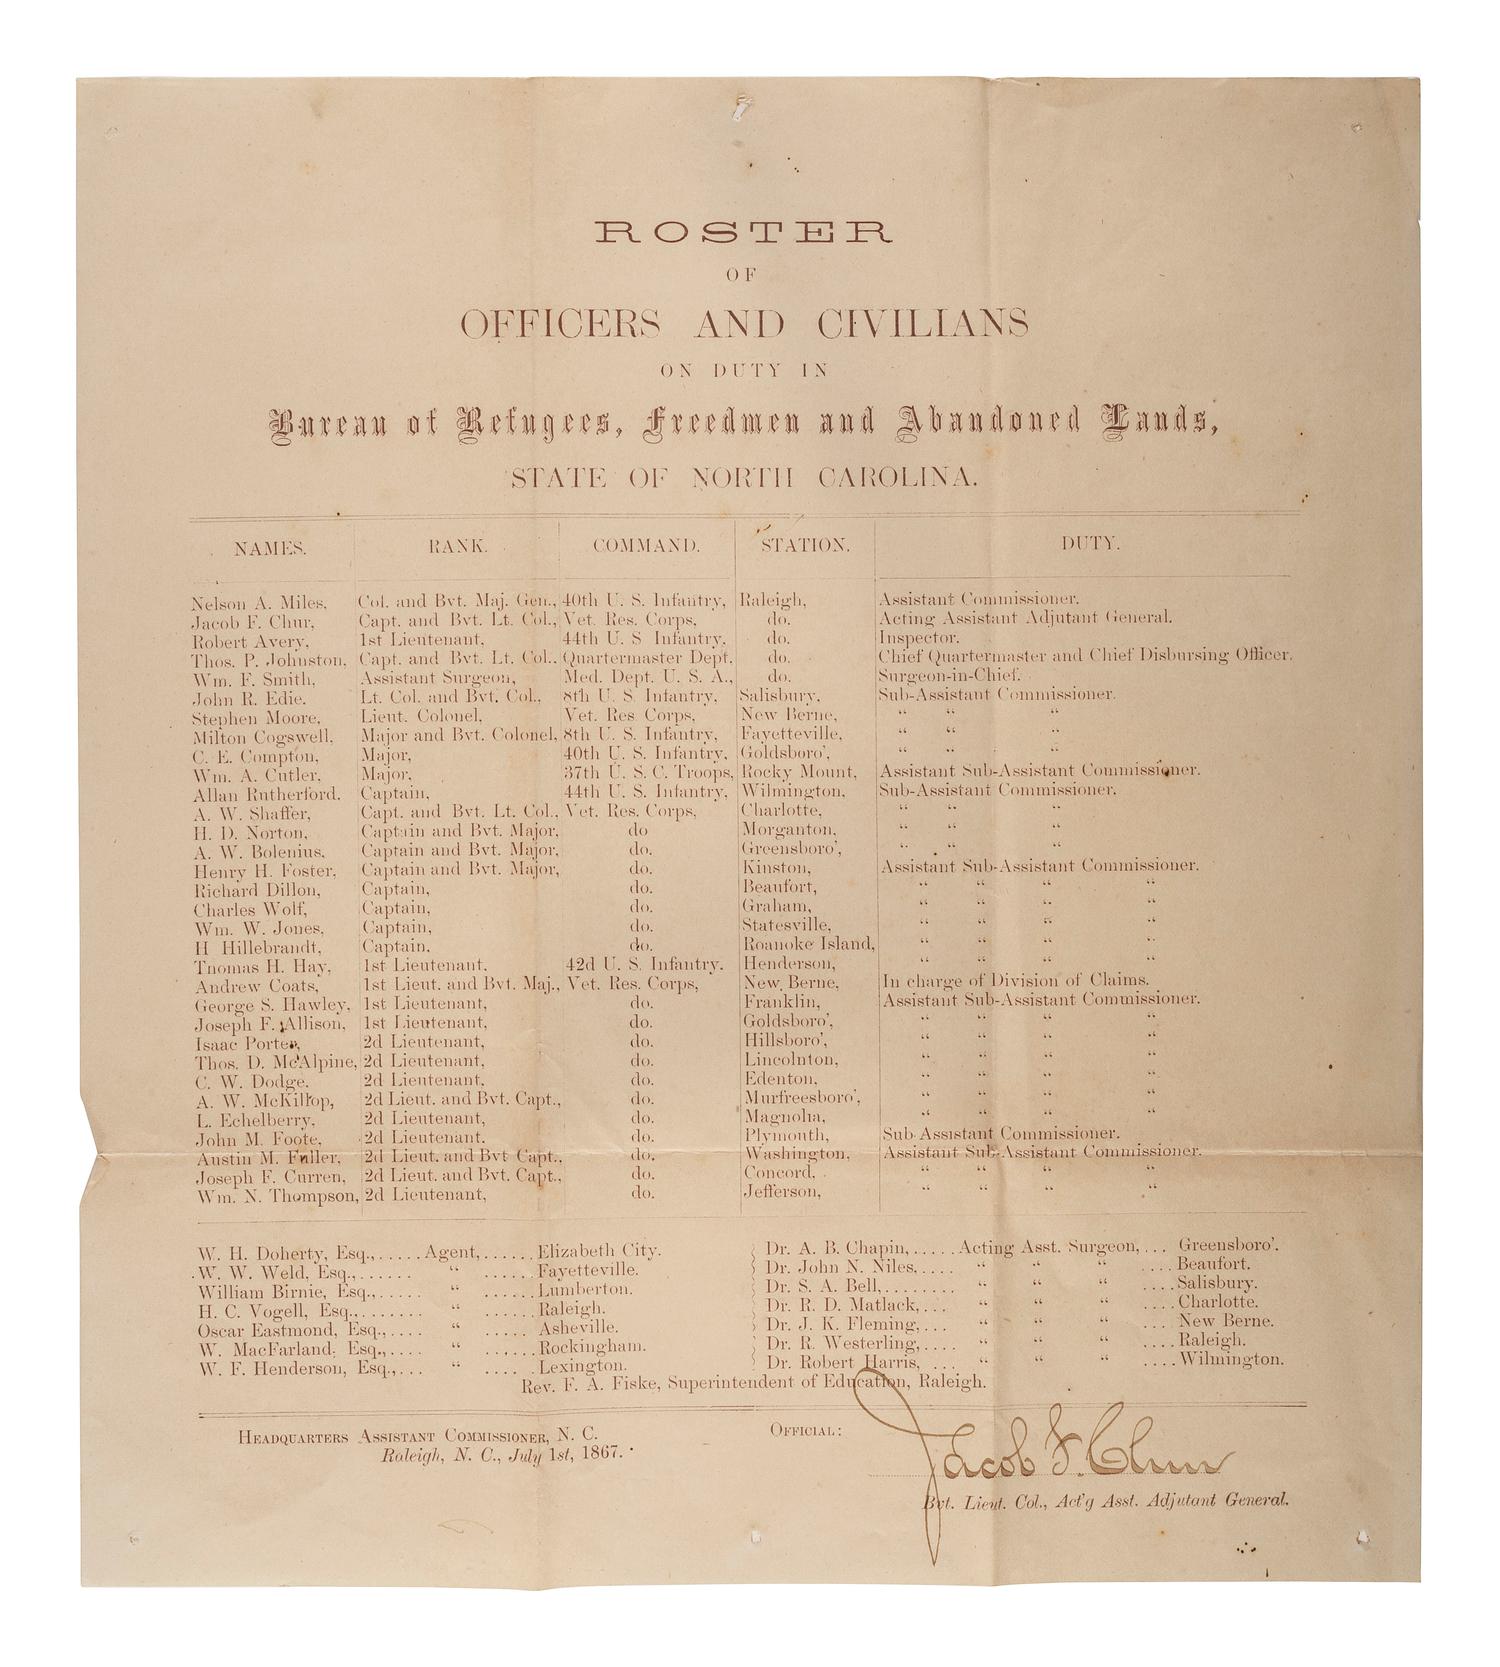 ROSTER
OF
OFFICERS AND CIVILIANS
ON DUTY IN
Bureau of Refugees, Freedmen and Abandoned Lands,
STATE OF NORTH CAROLINA.
NAMES. RANK. COMMAND. STATION. DUTY.
Nelson A. Miles, Col. and Bvt. Maj. Gen., 40th U. S. Infantry, Raleigh, Assistant Commissioner.
Jacob F. Chur, Capt. and Bvt. Lt. Col., Vet. Res. Corps, do. Acting Assistant Adjutant General.
Robert Avery, 1st Lieutenant, 44th U. S Infantry, do. Inspector.
Thos. P. Johnston, Capt. and Bvt. Lt. Col., Quartermaster Dept. do. Chief Quartermaster and Chief Disbursing Officer.
Wm. F. Smith, Assistant Surgeon, Med. Dept. U. S. A., do. Surgeon-in-Chief.
John R. Edie. Lt. Col. and Bvt. Col., 8th U. S. Infantry, Salisbury, Sub-Assistant Commissioner.
Stephen Moore, Lieut. Colonel, Vet. Res. Corps, New Berne, “ “ “
Milton Cogswell, Major and Bvt. Colonel, 8th U. S. Infantry, Fayetteville, “ “ “
C. E. Compton, Major, 40th U. S. Infantry, Goldsboro’, “ “ “
Wm. A. Cutler, Major, 37th U. S. C. Troops, Rocky Mount, Assistant Sub-Assistant Commissioner.
Allan Rutherford. Captain, 44th U. S. Infantry, Wilmington, Sub-Assistant Commissioner.
A. W. Shaffer, Capt. and Bvt. Lt. Col., Vet. Res. Corps, Charlotte, “ “ “
H. D. Norton, Captain and Bvt. Major, do Morganton, “ “ “
A. W. Bolenius, Captain and Bvt. Major, do. Greensboro’, “ “ “
Henry H. Foster, Captain and Bvt. Major, do. Kinston, Assistant Sub-Assistant Commissioner.
Richard Dillon, Captain, do. Beaufort, “ “ “ “
Charles Wolf, Captain, do. Graham, “ “ “ “
Wm. W. Jones, Captain, do. Statesville, “ “ “ “
H Hillebrandt, Captain, do. Roanoke Island, “ “ “ “
Tnomas H. Hay, 1st Lieutenant, 42d U. S. Infantry. Henderson, “ “ “ “
Andrew Coats, 1st Lieut. and Bvt. Maj., Vet. Res. Corps, New Berne, In charge of Division of Claims.
George S. Hawley, 1st Lieutenant, do. Franklin, Assistant Sub-Assistant Commissioner.
Joseph F. Allison, 1st Lieutenant, do. Goldsboro’, “ “ “ “
Isaac Porter, 2d Lieutenant, do. Hillsboro’, “ “ “ “
Thos. D. McAlpine, 2d Lieutenant, do. Lincolnton, “ “ “ “
C. W. Dodge. 2d Lieutenant, do. Edenton, “ “ “ “
A. W. McKillop, 2d Lieut. and Bvt. Capt., do. Murfreesboro’, “ “ “ “
L. Echelberry, 2d Lieutenant, do. Magnolia, “ “ “ “
John M. Foote, 2d Lieutenant. do. Plymouth, Sub-Assistant Commissioner.
Austin M. Fuller, 2d Lieut. and Bvt Capt., do. Washington, Assistant Sub-Assistant Commissioner.
Joseph F. Curren, 2d Lieut. and Bvt Capt., do. Concord, “ “ “ “
Wm. N. Thompson, 2d Lieutenant, do. Jefferson, “ “ “ “
W. H. Doherty, Esq.,.....Agent,......Elizabeth City. Dr. A. B. Chapin,.....Acting Asst. Surgeon,... Greensboro’.
W. W. Weld, Esq.,...... “ ......Fayetteville. Dr. John N. Niles,.... “ “ “ ....Beaufort.
William Birnie, Esq.,..... “ ......Lumberton. Dr. S. A. Bell,........ “ “ “ ....Salisbury.
H. C. Vogell, Esq.,....... “ ......Raleigh. Dr. R. D. Matlack,... “ “ “ ....Charlotte.
Oscar Eastmond, Esq.,.... “ ..... Asheville. Dr. J. K. Fleming,... “ “ “ ....New Berne.
W. MacFarland, Esq.,.... “ ......Rockingham. Dr. R. Westerling,... “ “ “ ....Raleigh.
W. F. Henderson, Esq.,... “ .... Lexington. Dr. Robert Harris, ... “ “ “ ....Wilmington.
Rev. F. A. Fiske, Superintendent of Education, Raleigh.
HEADQUARTERS ASSISTANT COMMISSIONER, N. C.
Raleigh, N. C., July 1st, 1867.
OFFICIAL:
Jacob F. Chur
Bvt. Lieut. Col., Act’g Asst. Adjutant General.